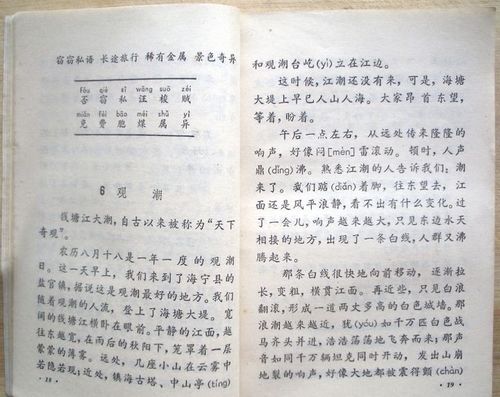 窃窃私语 长途旅行 稀有金属 景色奇异
fǒu qiè sī wāng suō zéi
否 窃 私 汪 梭 贼
miǎn fèi bāo méi shǔ yì
免 费 胞 煤 属 异
6 观 潮
钱塘江大潮,自古以来被称为“天下
奇观”。
农历八月十八是一年一度的观潮
日。这一天早上,我们来到了海宁县的
盐官镇,据说这是观潮最好的地方。我们
随着观潮的人流,登上了海塘大堤。宽
阔的钱塘江横卧在眼前。平静的江面,越
往东越宽,在雨后的秋阳下,笼罩着一层
蒙蒙的薄雾。远处,几座小山在云雾中
若隐若现;近处,镇海古塔、中山亭(tíng)
· 18 ·
和观潮台屹(yì)立在江边。
这时候,江潮还没有来,可是,海塘
大堤上早已人山人海。大家昂首东望,
等着,盼着。
午后一点左右,从远处传来隆隆的
响声,好像闷[mèn]雷滚动。顿时,人声
鼎(dǐng)沸。熟悉江潮的人告诉我们:潮
来了。我们踮(diǎn)着脚,往东望去,江
面还是风平浪静,看不出有什么变化。过
了一会儿,响声越来越大,只见东边水天
相接的地方,出现了一条白线,人群又沸
腾起来。
那条白线很快地向前移动,逐渐拉
长,变粗,横贯江面。再近些,只见白浪
翻滚,形成一道两丈多高的白色城墙。那
浪潮越来越近,犹(yóu)如千万匹白色战
马齐头并进,浩浩荡荡地飞奔而来;那声
音如同千万辆坦克同时开动,发出山崩
地裂的响声,好像大地都被震得颤(chàn)
· 19 ·